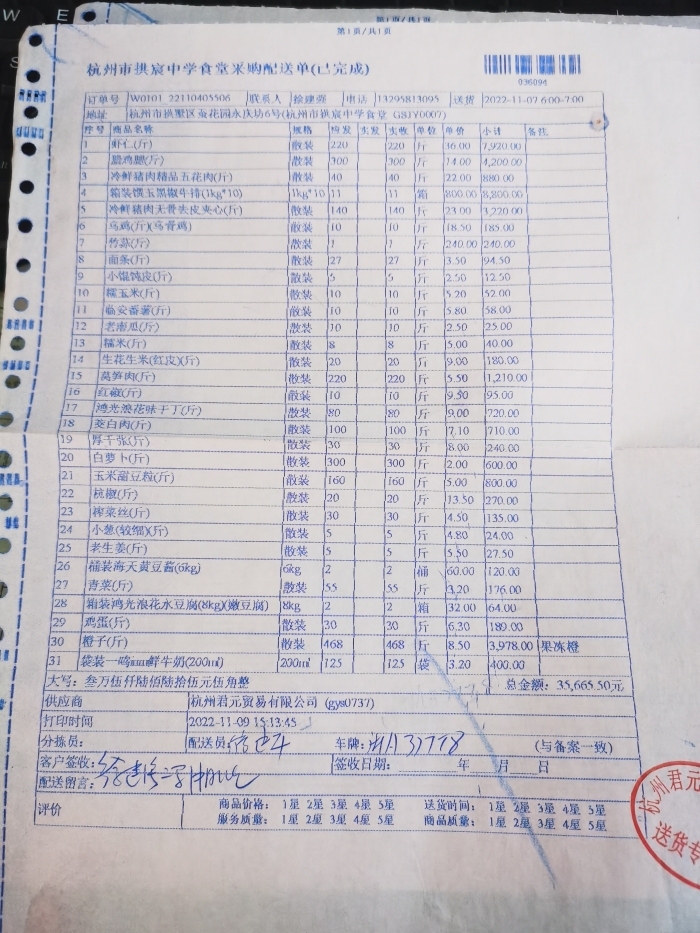 第1页/共1页
第1页/共1页
杭州市拱宸中学食堂采购配送单(已完成)
036094
订单号 W0101_22110405506 联系人 徐建强 电话 13295813095 送货 2022-11-07 6:00-7:00
地址: 杭州市拱墅区蚕花园永庆坊6号(杭州市拱宸中学食堂 GSJY0007)
序号 商品名称 规格 应发 实发 实收 单位 单价 小计 备注
1 虾仁(斤) 散装 220 220 斤 36.00 7,920.00
2 鸡腿(斤) 散装 300 300 斤 14.00 4,200.00
3 冷鲜猪肉精品五花肉(斤) 散装 40 40 斤 22.00 880.00
4 箱装馔玉黑椒牛排(1kg*10) 1kg*10 11 11 箱 800.00 8,800.00
5 冷鲜猪肉无骨去皮夹心(斤) 散装 140 140 斤 23.00 3,220.00
6 乌鸡(斤)(乌骨鸡) 散装 10 10 斤 18.50 185.00
7 竹荪(斤) 散装 1 1 斤 240.00 240.00
8 面条(斤) 散装 27 27 斤 3.50 94.50
9 小馄饨皮(斤) 散装 5 5 斤 2.50 12.50
10 糯玉米(斤) 散装 10 10 斤 5.20 52.00
11 临安番薯(斤) 散装 10 10 斤 5.80 58.00
12 老南瓜(斤) 散装 10 10 斤 2.50 25.00
13 糯米(斤) 散装 8 8 斤 5.00 40.00
14 生花生米(红皮)(斤) 散装 20 20 斤 9.00 180.00
15 莴笋肉(斤) 散装 220 220 斤 5.50 1,210.00
16 红椒(斤) 散装 10 10 斤 9.50 95.00
17 鸿光浪花味干丁(斤) 散装 80 80 斤 9.00 720.00
18 茭白肉(斤) 散装 100 100 斤 7.10 710.00
19 厚千张(斤) 散装 30 30 斤 8.00 240.00
20 白萝卜(斤) 散装 300 300 斤 2.00 600.00
21 玉米甜豆粒(斤) 散装 160 160 斤 5.00 800.00
22 杭椒(斤) 散装 20 20 斤 13.50 270.00
23 榨菜丝(斤) 散装 30 30 斤 4.50 135.00
24 小葱(较细)(斤) 散装 5 5 斤 4.80 24.00
25 老生姜(斤) 散装 5 5 斤 5.50 27.50
26 桶装海天黄豆酱(6kg) 6kg 2 2 桶 60.00 120.00
27 青菜(斤) 散装 55 55 斤 3.20 176.00
28 箱装鸿光浪花水豆腐(8kg)(嫩豆腐) 8kg 2 2 箱 32.00 64.00
29 鸡蛋(斤) 散装 30 30 斤 6.30 189.00
30 橙子(斤) 散装 468 468 斤 8.50 3,978.00 果冻橙
31 袋装一鸣鲜牛奶(200ml) 200ml 125 125 袋 3.20 400.00
大写: 叁万伍仟陆佰陆拾伍元伍角整 总金额: 35,665.50元
供应商 杭州君元贸易有限公司 (gys0737)
打印时间 2022-11-09 15:13:45
分拣员: 配送员: 车牌: (与备案一致)
客户签收: 签收日期: 年 月 日
配送留言:
评价 商品价格: 1星 2星 3星 4星 5星 送货时间: 1星 2星 3星 4星 5星
服务质量: 1星 2星 3星 4星 5星 商品质量: 1星 2星 3星 4星 5星
杭州君元
送货专